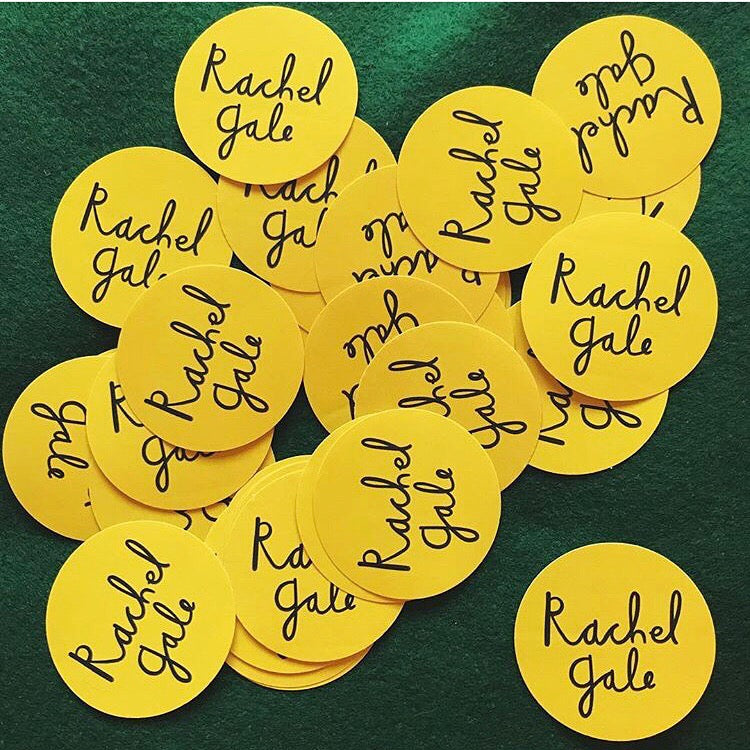 Rachel
gale
Rachel
gale
Rachel
gale
Rachel
gale
Rachel
gale
Rachel
gale
Rachel
gale
Rachel
gale
Rachel
gale
Rachel
gale
gale
gale
gale
gale